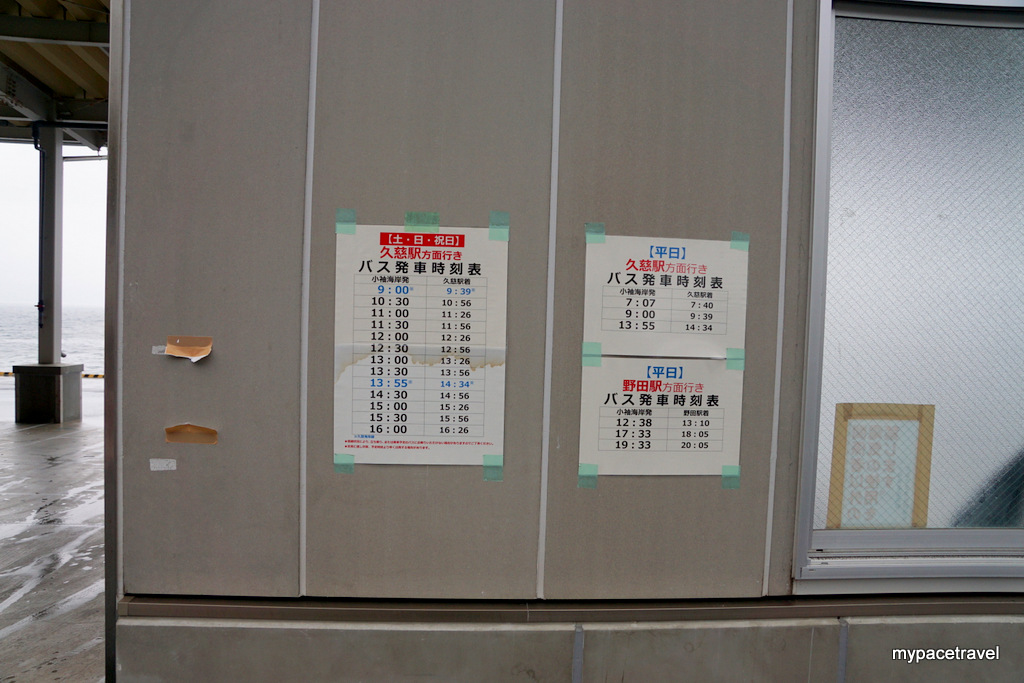 【土・日・祝日】
久慈駅方面行き
バス発車時刻表
小袖海岸発 久慈駅着
9：00※ 9：39※
10：30 10：56
11：00 11：26
11：30 11：56
12：00 12：26
12：30 12：56
13：00 13：26
13：30 13：56
13：55※ 14：34※
14：30 14：56
15：00 15：26
15：30 15：56
16：00 16：26
【平日】
久慈駅方面行き
バス発車時刻表
小袖海岸発 久慈駅着
7：07 7：40
9：00 9：39
13：55 14：34
【平日】
野田駅方面行き
バス発車時刻表
小袖海岸発 野田駅着
12：38 13：10
17：33 18：05
19：33 20：05
mypacetravel